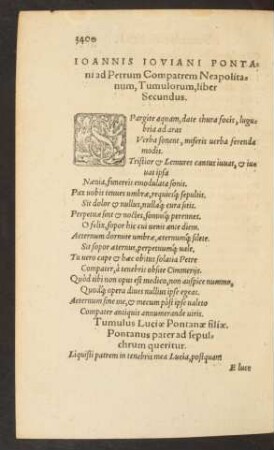 IOANNIS IOVIANI PONTA
ni ad Petrum Compatrem Neapolita
num, Tumulorum, liber
Secundus.
SPargite aquam, date thura focis, lugu
bria ad aras
Verba sonent, miseris uerba ferenda
modis.
Tristior & Lemures cantus iuuat, & iu
uat ipsa
Nænia, funereis emodulata sonis.
Pax uobis tenues umbræ, requiesq; sepultis.
Sit dolor & nullus, nullaq; cura sitis.
Perpetuæ sint & noctes, somniq; perennes.
O felix, sopor hic cui uenit ante diem.
Aeternum dormite umbræ, æternumq; silete.
Sit sopor æternus, perpetuumq; uale.
Tu uero cape & hæc obitus solatia Petre
Compater, à tenebris obsite Cimmerijs.
Quòd tibi non opus est medico, non auspice nummo,
Quodq; opera diues nullius ipse egeas.
Aeternum sine me, & mecum pòst ipse ualeto
Compater antiquis annumerande uiris.
Tumulus Luciæ Pontanæ filiæ.
Pontanus pater ad sepul
chrum queritur.
Liquisti patrem in tenebris mea Lucia, postquam
E luce